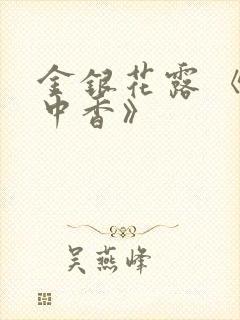 金银花露《
中香》
吴燕峰